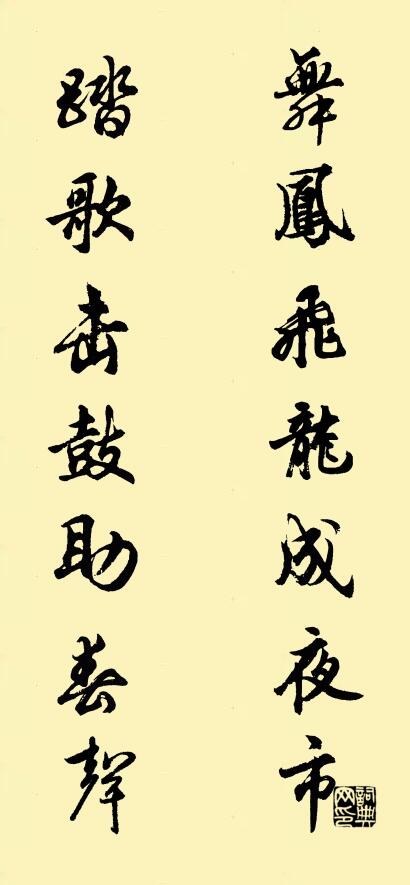 舞鳳飛龍成夜市
踏歌击鼓助春聲
詞典
网印